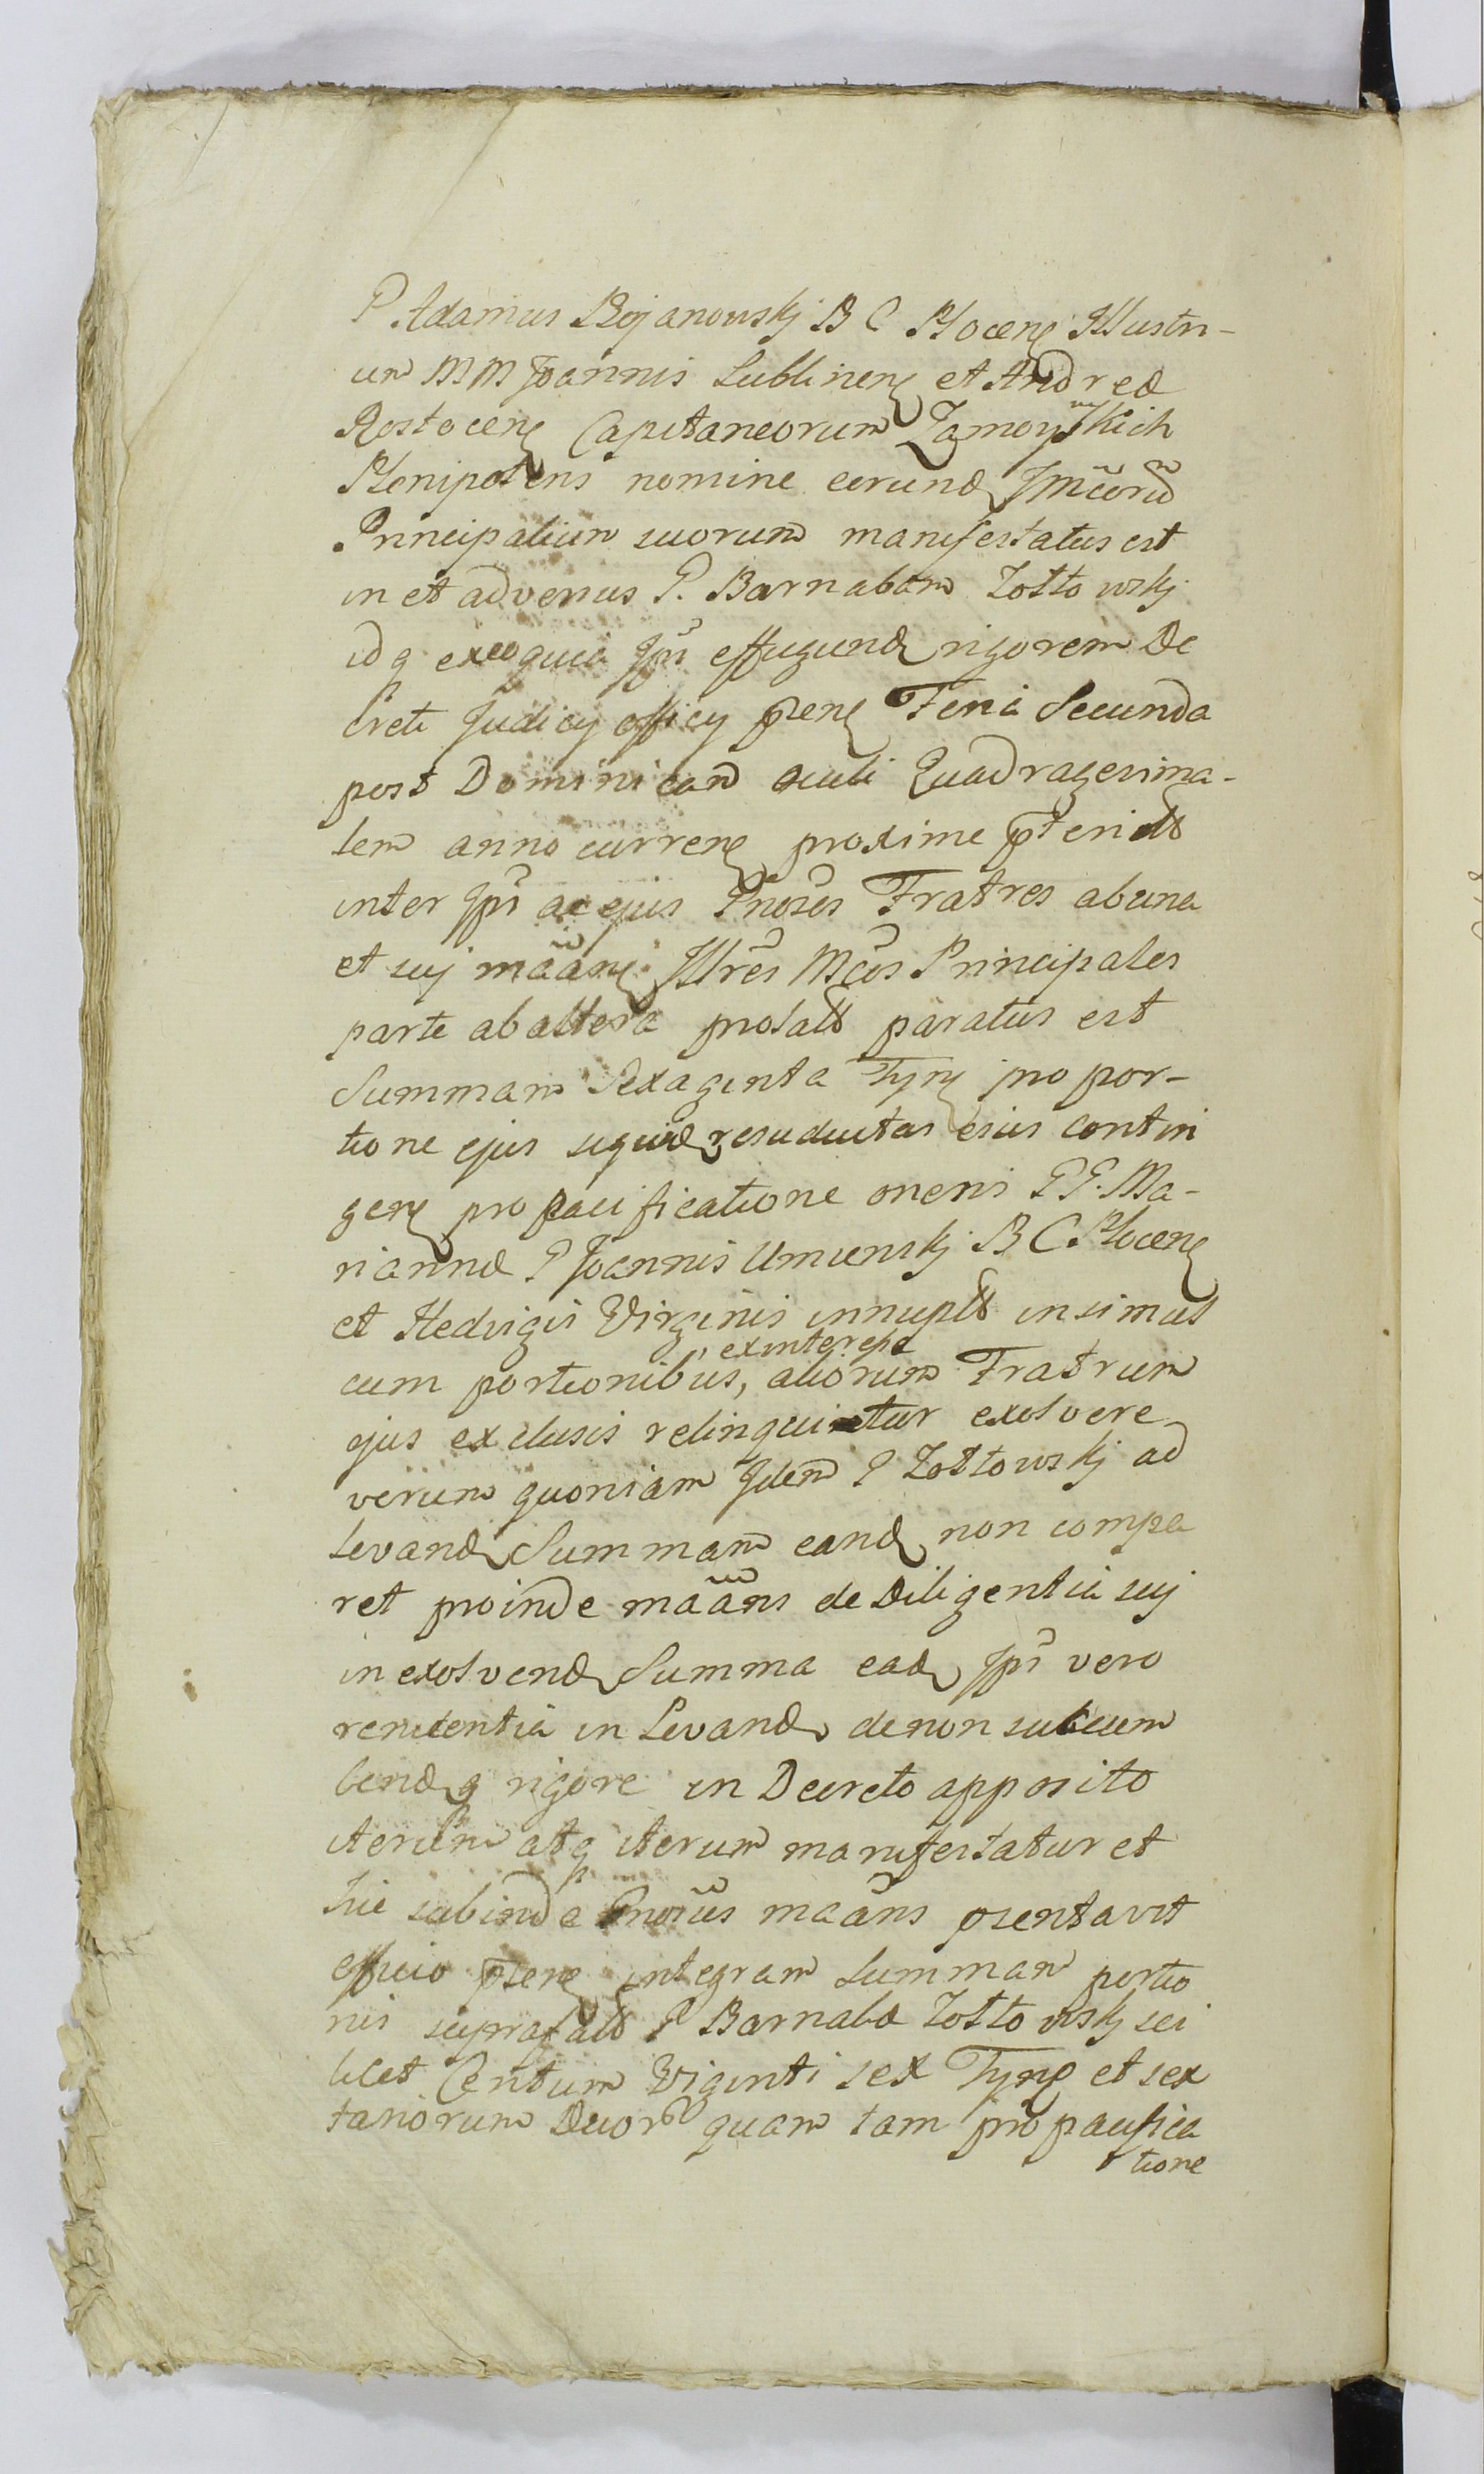 P. Adamus Bojanowskj B C Plocenς Illustri-
um M M Joannis Lublinenς et Andreæ
Rostocenς Capitaneorum Zamoyskich
Plenipotens nomine eorundς
Principalium suorum manifestatus est
in et adversus P. Barnabam Zołtowskj
idq ex eo quia Ips effugiendς rigorem De
creti Judicij officij pñς Feria Secunda
post Dominicam Oculi Quadragesima-
lem anno currenς proxime pterit
inter Ips ac ejus Gnosos Fratres ab una
et suj maãnς Illres Mcos Principales
parte ab altera prolat paratus est
Summam Sexaginta Tynς pro por-
tione ejus siquidς contin
genς pro pacificatione oneris P P. Ma-
riannæ P Joannis Umienskj B C Plocenς
et Hedvigis Virginis innupt insimul
cum portionibus, aliorum Fratrum
ejus exclusis relinquitur exolvere
verum quoniam Idem P Zołtowskj ad
Levandς Summam eandς non compa
ret proinde maãns de Diligentia suj
in exolvendς Summa eadς Ips vero
renitentia in Levandς de non succum
bendςq rigore in Decreto apposito
iterum atq iterum manifestatur et
hic subinde Gnosus maãns psentavit
officio psenς integram Summam portio
nis suprafat P Barnabæ Zołtowskj sci
licet Centum Viginti sex Tynς et sex
tanorum Duor quam tam pro pacifica
tione